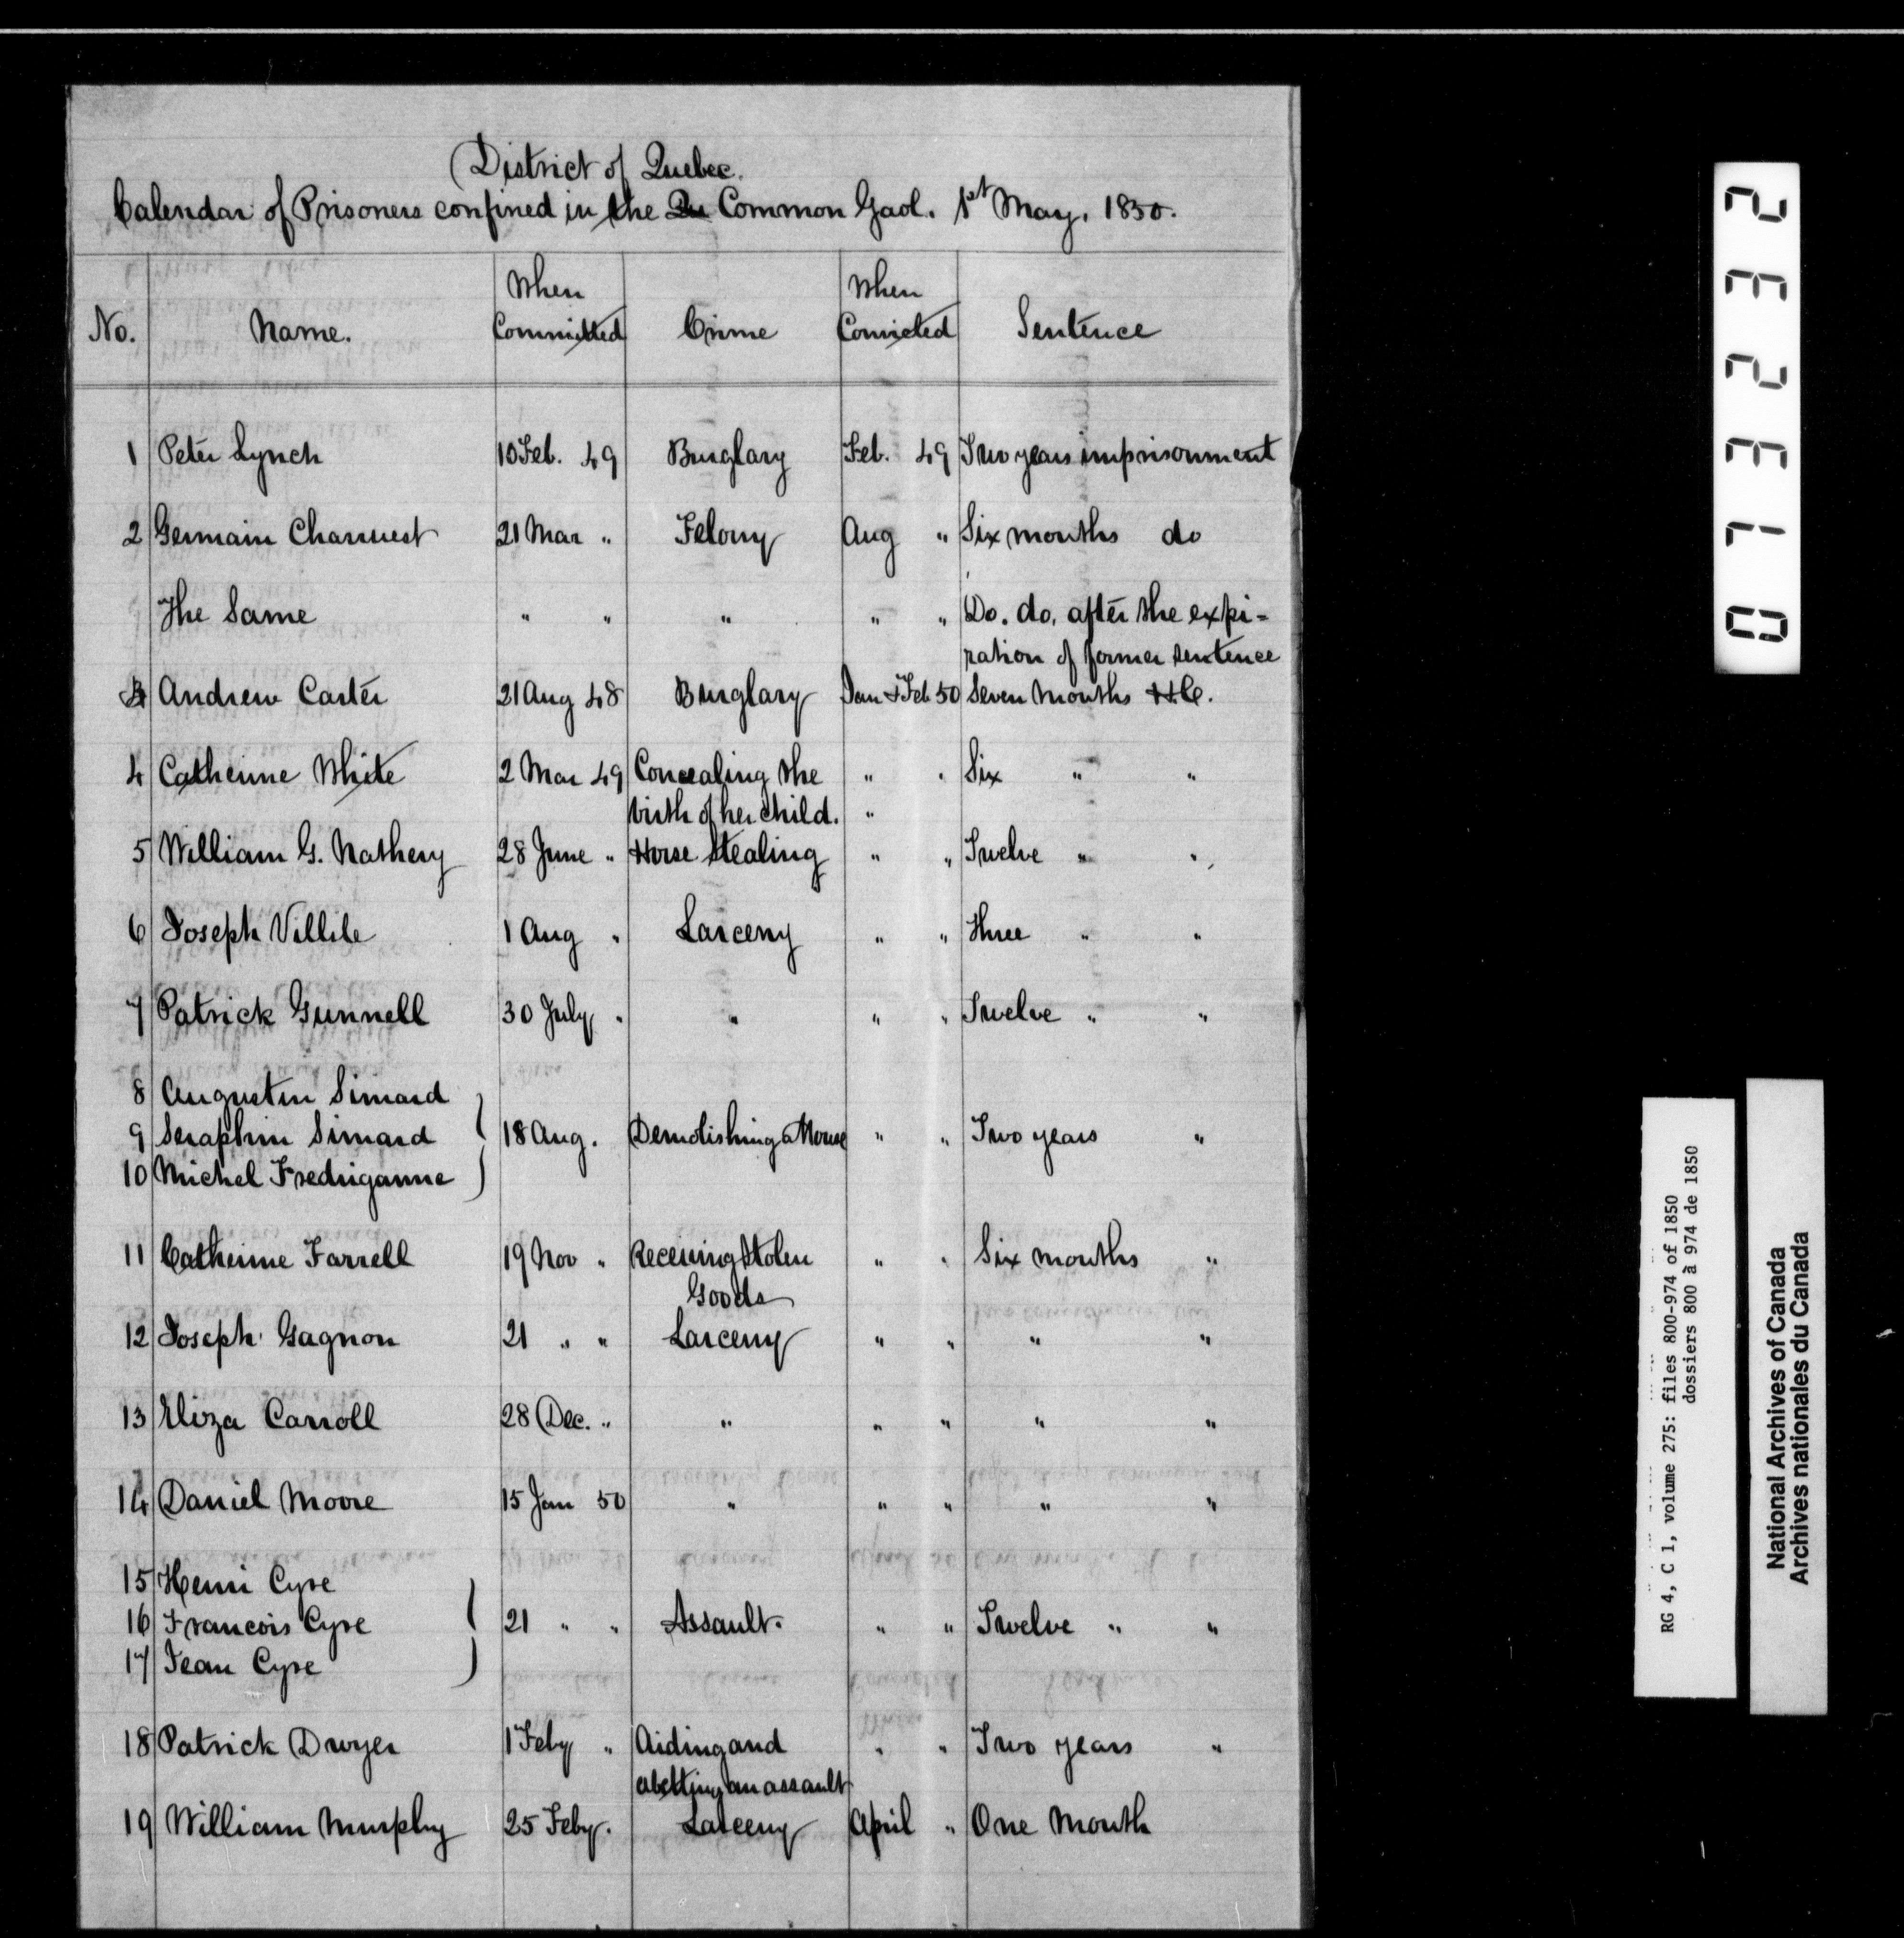 District of Quebec.
Calendar of Prisoners confined in the Qu Common Gaol. 1st May, 1850.
No. Name. When Committed Crime When Convicted Sentence
1 Peter Lynch 10 Feb. 49 Burglary Feb. 49 Two years imprisonment
2 Germain Charwest 21 Mar " Felony Aug " Six months do
The Same " " " " " Do. do. after the expi-
ration of former sentence
3 Andrew Carter 21 Aug 48 Burglary Jan & Feb 50 Seven Months H.C.
4 Catherine White 2 Mar 49 Concealing the " " Six " "
birth of her child. "
5 William G. Nathery 28 June " Horse Stealing " " Twelve " "
6 Joseph Villile 1 Aug " Larceny " " Three " "
7 Patrick Gunnell 30 July " " " " Twelve " "
8 Augustin Simard
9 Seraphin Simard 18 Aug. Demolishing a House " " Two years "
10 Michel Fredriganne
11 Catherine Farrell 19 Nov " Receiving Stolen " " Six months "
Goods
12 Joseph Gagnon 21 " " Larceny " " " "
13 Eliza Carroll 28 Dec. " " " " " "
14 Daniel Moore 15 Jan 50 " " " " "
15 Henri Cyre
16 Francois Cyre 21 " " Assault. " " Twelve " "
17 Jean Cyre
18 Patrick Dwyer 1 Feby " Aiding and " " Two years "
abetting an assault
19 William Murphy 25 Feby. Larceny April " One Month
073232
RG 4, C 1, volume 275: files 800-974 of 1850
dossiers 800 à 974 de 1850
National Archives of Canada
Archives nationales du Canada